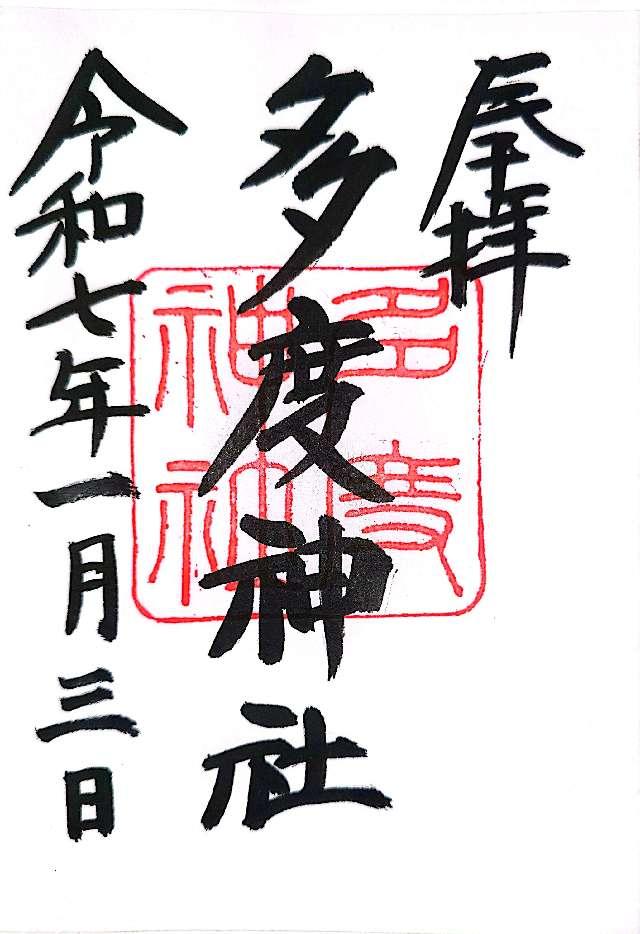 奉拝
多度神社
令和七年一月三日
多度
神社